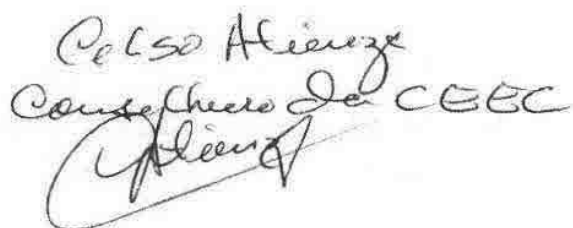 Celso Atienza
Conselheiro da CEEC
Atienza